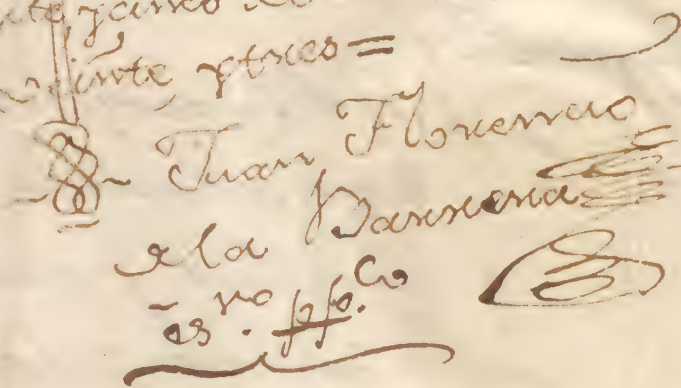 veinte y tres =
Juan Florencio
de la Barrera
es.no pp.co